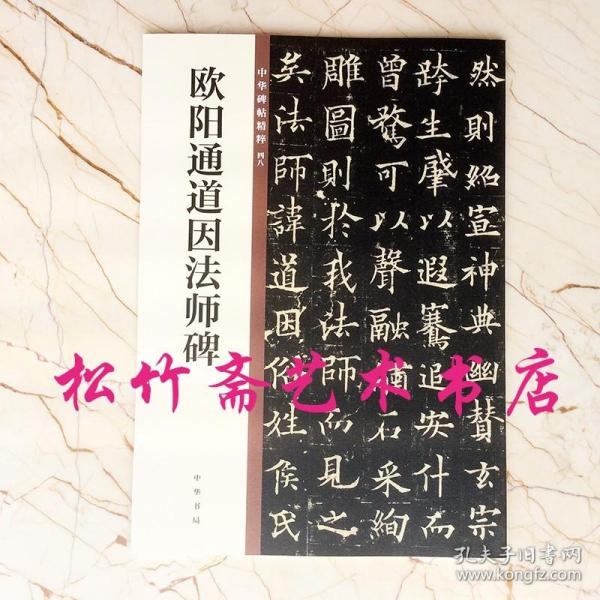 欧阳通道因法师碑
中华碑帖精粹 四八
中华书局
然则紹宣神典幽贊玄宗
跨生肇以遐騫追安什而
曾驁可以聲融猷石采絢
雕圖則於我法師而見之
矣法師諱道因俗姓侯氏
松竹斋艺术书店
孔夫子旧书网
www.kongfz.com